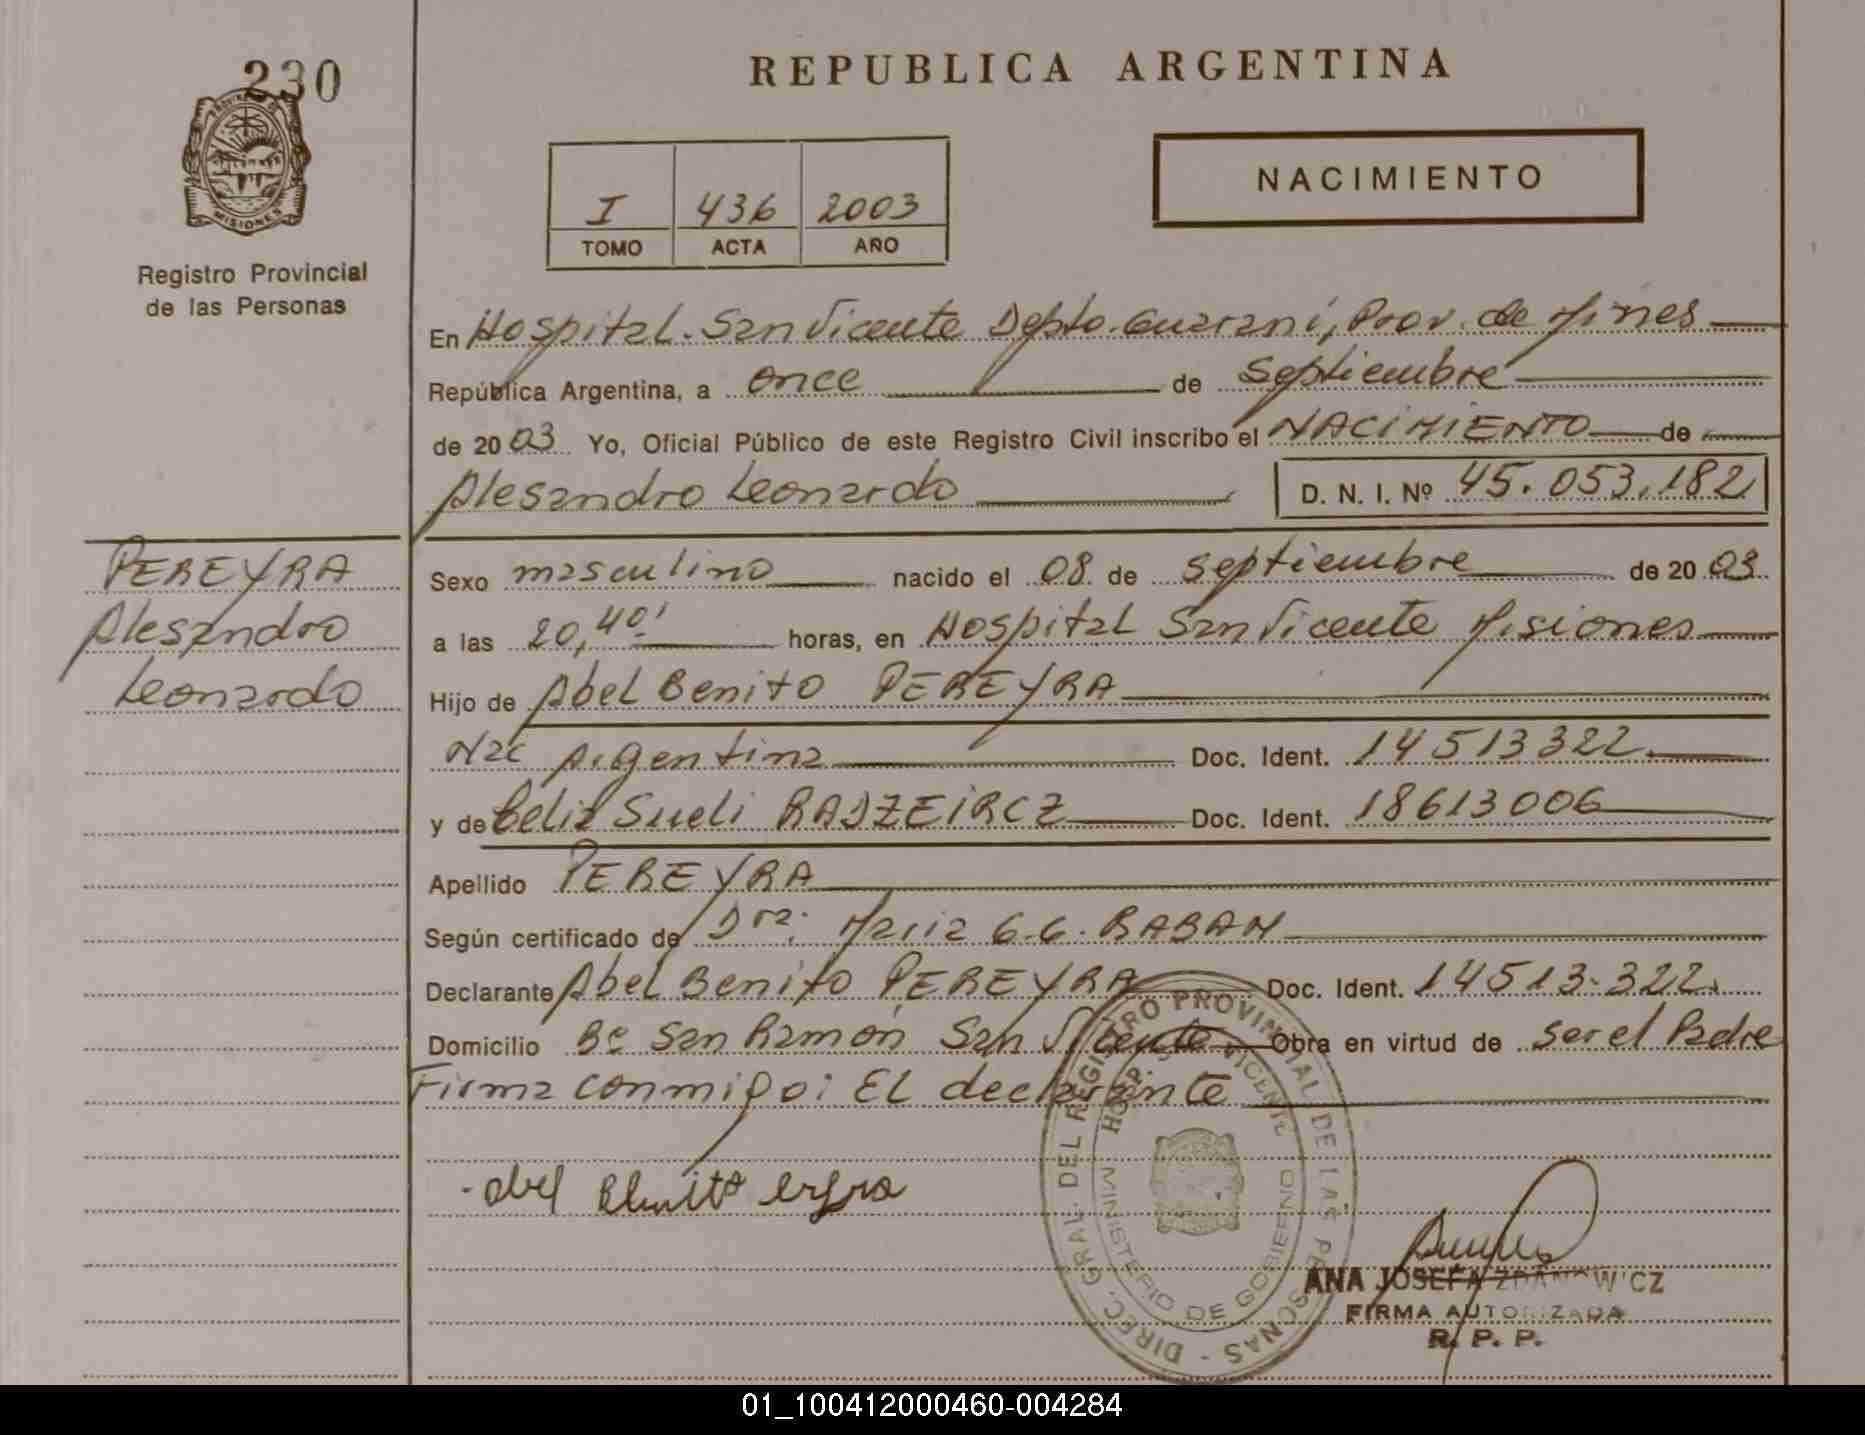 230
MISIONES
Registro Provincial
de las Personas
REPUBLICA ARGENTINA
I 436 2003
TOMO ACTA AÑO
NACIMIENTO
En Hospital. San Vicente Depto. Guaraní, Prov. de Mnes
República Argentina, a once de Septiembre
de 2003 Yo, Oficial Público de este Registro Civil inscribo el NACIMIENTO de
Alesandro Leonardo D. N. I. Nº 45.053.182
PEREYRA
Alesandro
Leonardo
Sexo masculino nacido el 08 de septiembre de 2003
a las 20,40' horas, en Hospital San Vicente Misiones
Hijo de Abel Benito PEREYRA
Nac Argentina Doc. Ident. 14513322
y de Celia Sueli RADZEIRCZ Doc. Ident. 18613006
Apellido PEREYRA
Según certificado de Dra. Maria G.G. RABAN
Declarante Abel Benito PEREYRA Doc. Ident. 14513.322.
Domicilio Bº San Ramón San Vicente Obra en virtud de ser el Padre
Firma conmigo: El declarante
DIREC. GRAL. DEL REGISTRO PROVINCIAL DE LAS PERSONAS
HOSP. VICENTE
MINISTERIO DE GOBIERNO
ANA JOSEFA ZDANOWICZ
FIRMA AUTORIZADA
R. P. P.
01_100412000460-004284